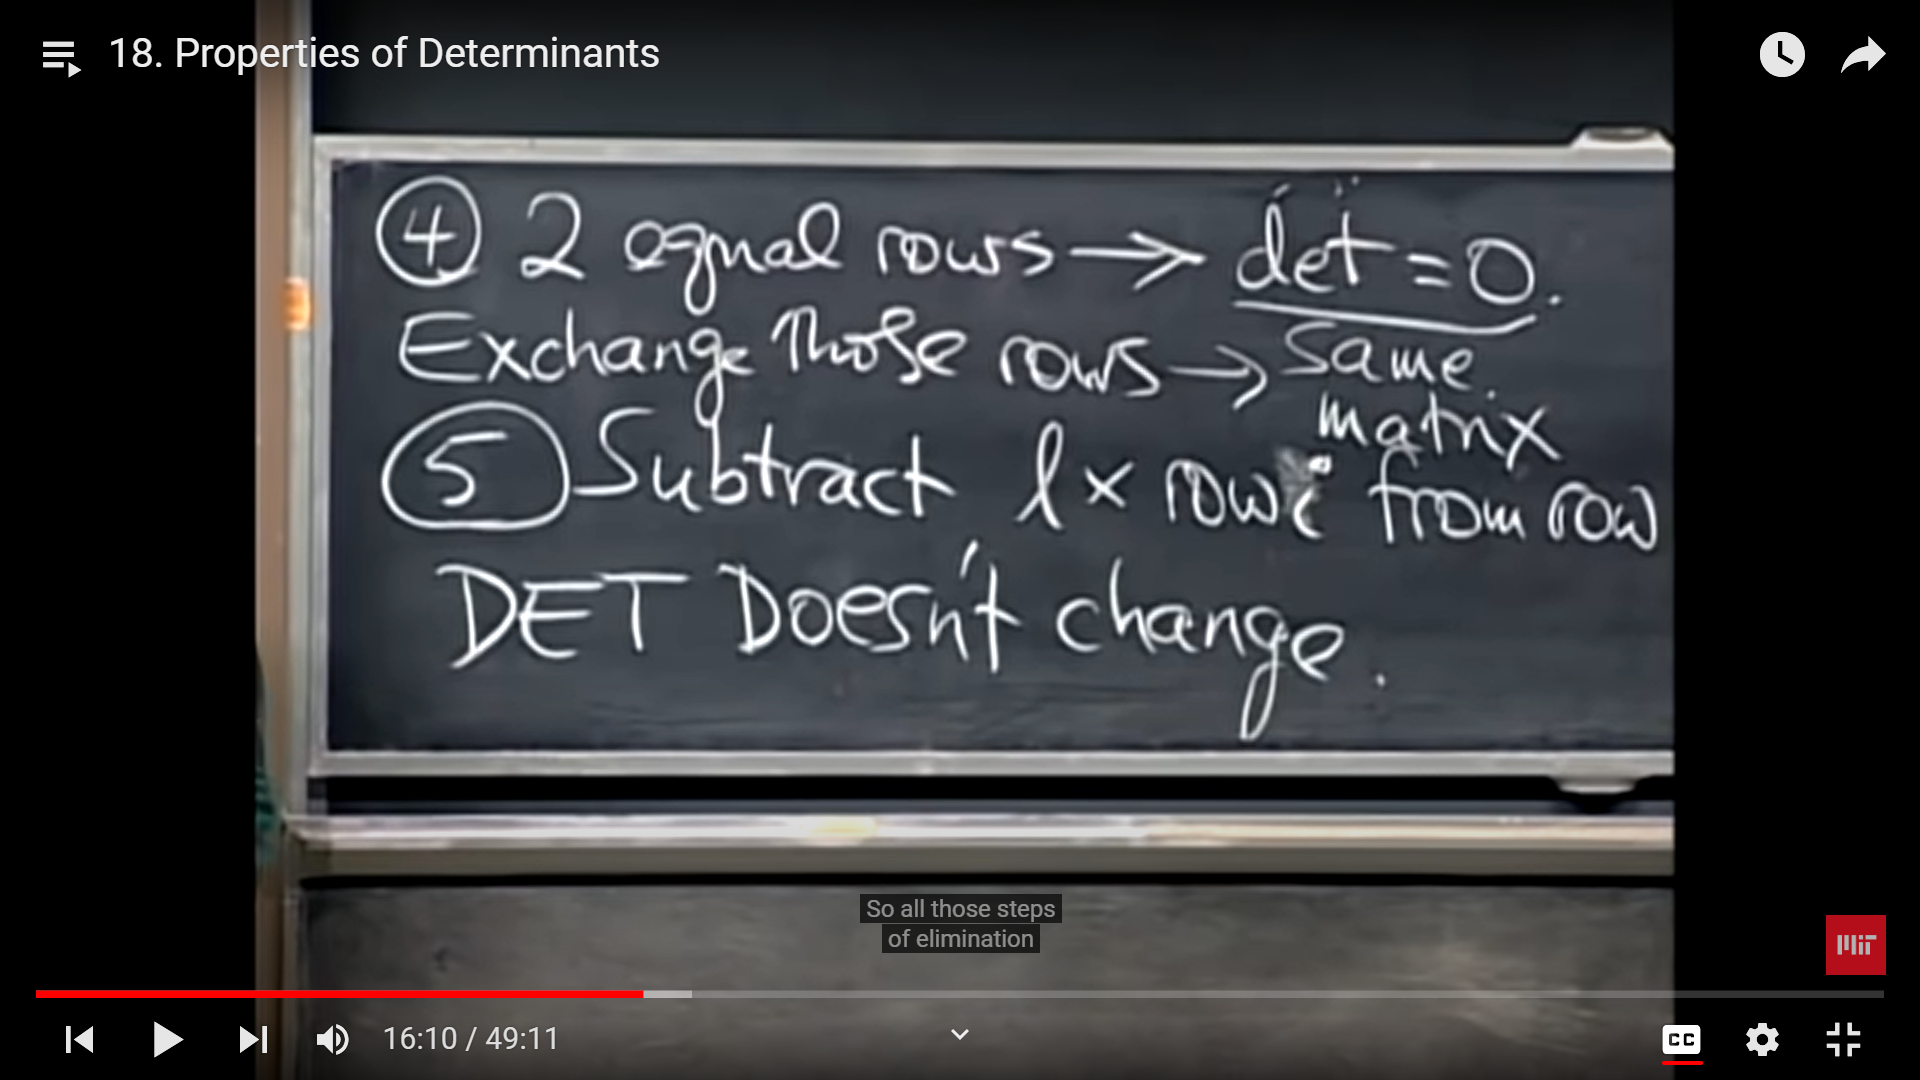 18. Properties of Determinants
④ 2 equal rows → det = 0.
Exchange those rows → same
matrix
⑤ Subtract l × row i from row
DET Doesn't change.
So all those steps
of elimination
MIT
16:10 / 49:11
CC